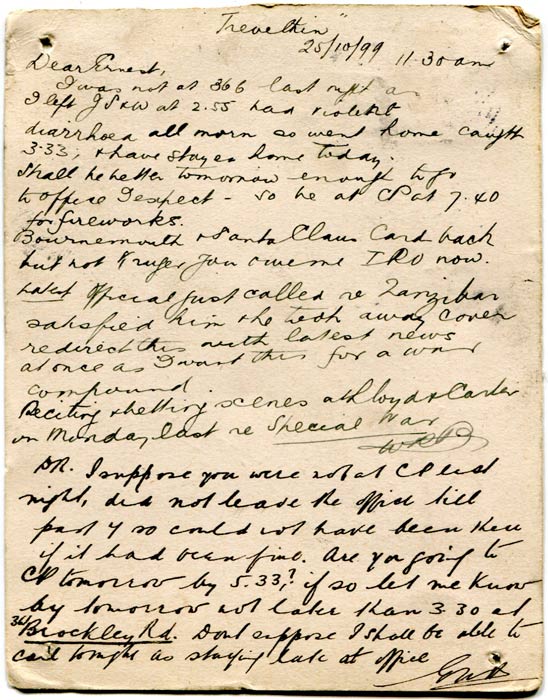 "Trevelkin"
25/10/99 11.30 am
Dear Ernest,
I was not at 366 last night as
I left J S & W at 2.55 had violent
diarrhoea all morn so went home caught
3.33, & have stayed home today.
Shall be better tomorrow enough to go
to office I expect - so be at CP at 7.40
for fireworks.
Bournemouth & Santa Claus Card back
but not Kruger you owe me I RO now.
Latest Official just called re Zanzibar
satisfied him & he took away cover
redirect this with latest news
at once as I want this for a
compound.
Reciting & betting scenes at Lloyd & Carter
on Monday last re Special War
WRB
DR. I suppose you were not at CP last
night, did not leave the office till
past 7 so could not have been there
if it had been fine. Are you going to
CP tomorrow by 5.33? if so let me know
by tomorrow not later than 3.30 at
Brockley Rd. Dont suppose I shall be able to
call tonight as staying late at office